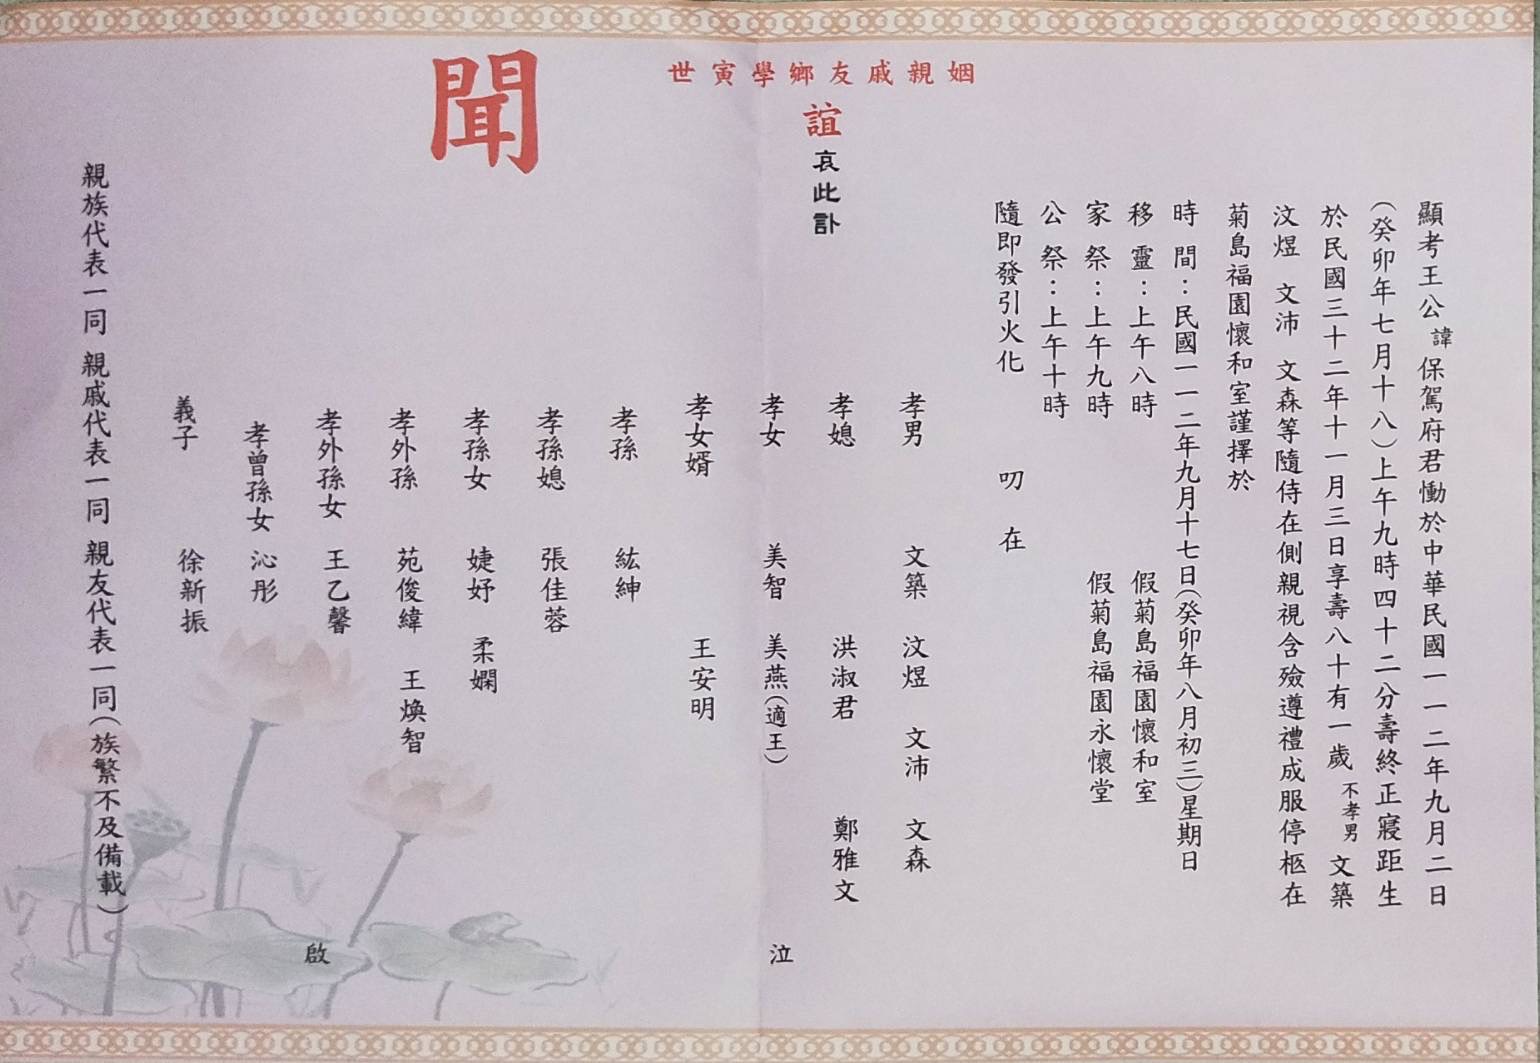 顯考王公諱保駕府君慟於中華民國一一二年九月二日
(癸卯年七月十八)上午九時四十二分壽終正寢距生
於民國三十二年十一月三日享壽八十有一歲 不孝男 文築
汶煜 文沛 文森等隨侍在側親視含殮遵禮成服停柩在
菊島福園懷和室謹擇於
時間：民國一一二年九月十七日(癸卯年八月初三)星期日
移靈：上午八時 假菊島福園懷和室
家祭：上午九時 假菊島福園永懷堂
公祭：上午十時
隨即發引火化 叨在
姻親戚友鄉學寅世
誼 哀此訃
聞
孝男 文築 汶煜 文沛 文森
孝媳 洪淑君 鄭雅文
孝女 美智 美燕(適王) 泣
孝女婿 王安明
孝孫 紘紳
孝孫媳 張佳蓉
孝孫女 婕妤 柔嫻
孝外孫 苑俊緯 王煥智
孝外孫女 王乙馨 啟
孝曾孫女 沁彤
義子 徐新振
親族代表一同 親戚代表一同 親友代表一同(族繁不及備載)